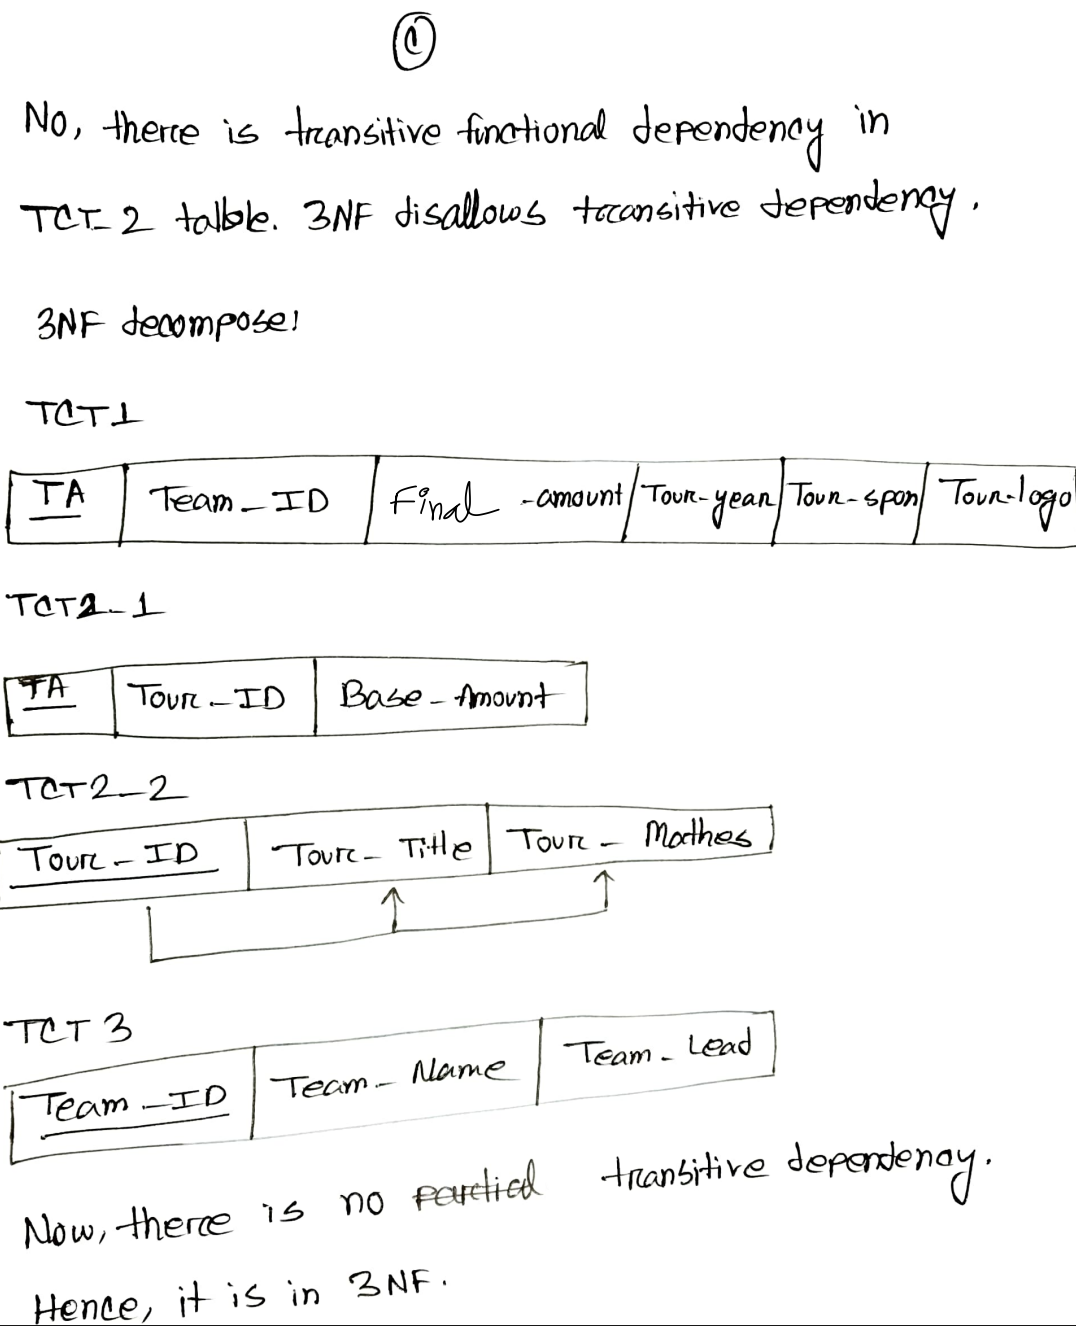 C
No, there is transitive functional dependency in
TCT-2 table. 3NF disallows transitive dependency.
3NF decompose:
TCT1
TA Team_ID Final-amount Tour-year Tour-spon Tour-logo
TCT2-1
TA Tour-ID Base-Amount
TCT2-2
Tour-ID Tour-Title Tour-Mathes
TCT 3
Team-ID Team-Name Team-Lead
Now, there is no partial transitive dependency.
Hence, it is in 3NF.